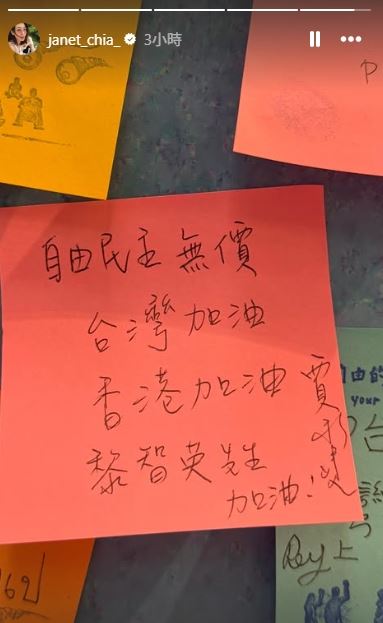 janet_chia_ 3小時
P
自由民主無價
台灣加油
香港加油
黎智英先生
加油！
賈
由的
your
台
Rey上